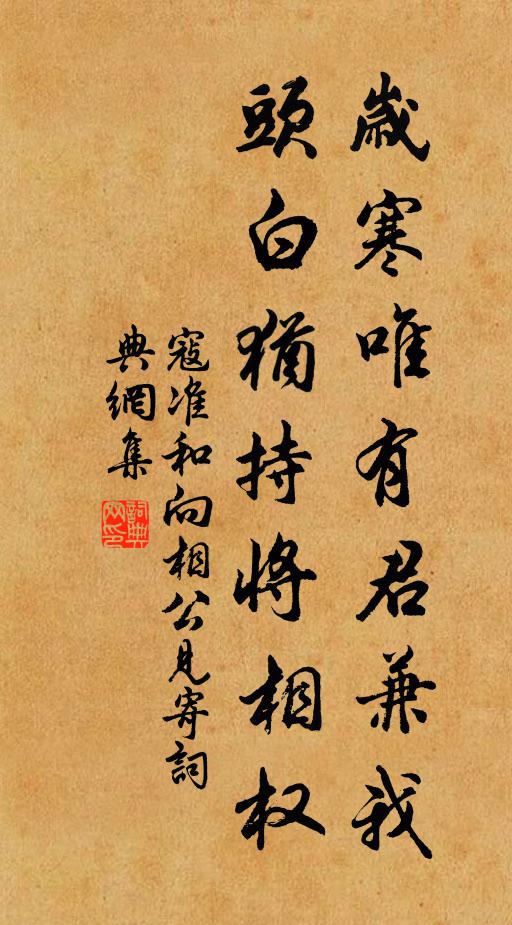 歲寒唯有君兼我
頭白猶持將相权
寇准和向相公見寄詞
典網集
詞典网印